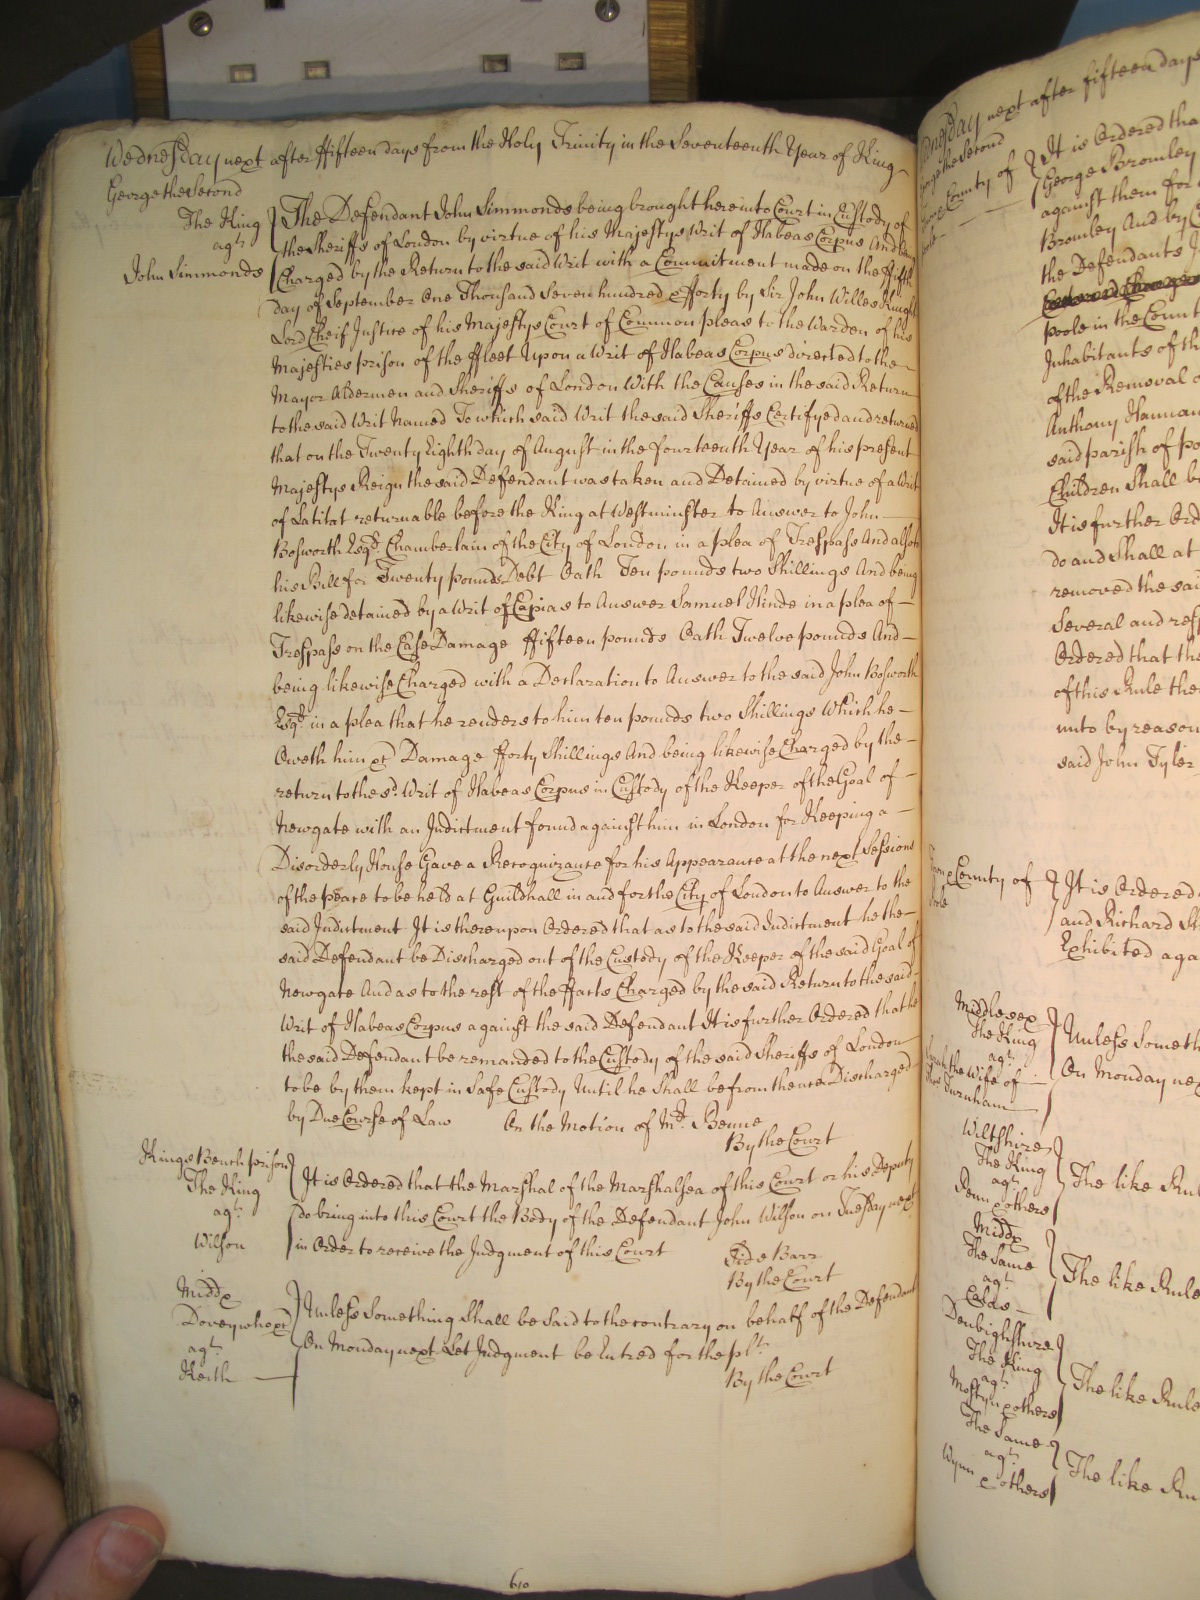 Wednesday next after ffifteen days from the Holy Trinity in the Seventeenth Year of King
George the Second
The King
agt
John Simmonds
The Defendant John Simmonds being brought here into Court in Custody of
the Sheriffs of London by virtue of his Majestys Writ of Habeas Corpus And being
Charged by the Return to the said Writ with a Commitment made on the ffifth
day of September One Thousand Seven hundred & fforty by Sir John Willes Knight
Lord Cheif Justice of his Majestys Court of Common pleas to the Warden of his
Majesties prison of the ffleet Upon a Writ of Habeas Corpus directed to the
Mayor Aldermen and Sheriffs of London With the Causes in the said Return
to the said Writ Named To which said Writ the said Sheriffs Certifyed and returned
that on the Twenty Eighth day of August in the fourteenth Year of his present
Majestys Reign the said Defendant was taken and Detained by virtue of a Writ
of Latitat returnable before the King at Westminster to Answer to John
Bosworth Esqr. Chamberlain of the City of London in a plea of Trespass And also to
his Bill for Twenty pounds Debt Oath Ten pounds two Shillings And being
likewise detained by a Writ of Capias to Answer Samuel Hinde in a plea of
Trespass on the Case Damage ffifteen pounds Oath Twelve pounds And
being likewise Charged with a Declaration to Answer to the said John Bosworth
Esqr. in a plea that he renders to him ten pounds two Shillings Which he
Oweth him &c Damage fforty Shillings And being likewise Charged by the
return to the sd. Writ of Habeas Corpus in Custody of the Keeper of the Goal of
Newgate with an Indictment found against him in London for Keeping a
Disorderly House Gave a Recognizance for his Appearance at the next Sessions
of the peace to be held at Guildhall in and for the City of London to Answer to the
said Indictment It is thereupon Ordered that as to the said Indictment he the
said Defendant be Discharged out of the Custody of the Keeper of the said Goal of
Newgate And as to the rest of the ffacts Charged by the said Return to the said
Writ of Habeas Corpus against the said Defendant It is further Ordered that he
the said Defendant be remanded to the Custody of the said Sheriffs of London
to be by them kept in Safe Custody Until he Shall be from thence Discharged
by Due Course of Law On the Motion of Mr.
By the Court
Kings Bench prison
The King
agt.
Wilson
It is Ordered that the Marshal of the Marshalsea of this Court or his Deputy
do bring into this Court the Body of the Defendant John Wilson on Tuesday next
in Order to receive the Judgment of this Court
Side Barr
By the Court
Middx
Dovey who &c
agt.
Keith
Unless Something Shall be Said to the contrary on behalf of the Defendant
On Monday next Let Judgment be Entred for the plt.
By the Court
610
Wednesday next after fifteen days
George the Second
Town & County of
Poole
It is Ordered tha
George Bromley
against them for
Bromley And by
the Defendants
poole in the Count
Inhabitants of th
of the Removal o
Anthony Hannam
said parish of po
Children Shall be
It is further Ord
do and Shall at
removed the sai
Several and resp
Ordered that the
of this Rule the
unto by reason
said John Tyler
Town & County of
Poole
It is Ordered
and Richard St
Exhibited aga
Middlesex
The King
agt.
the Wife of
Burnham
Unless Someth
On Monday nex
Wiltshire
The King
agt.
Penn & others
The like Rul
Middx
The Same
agt.
The like Rule
Denbighshire
The King
agt.
Mostyn & others
The like Rule
The Same
agt.
Wynn & others
The like Ru